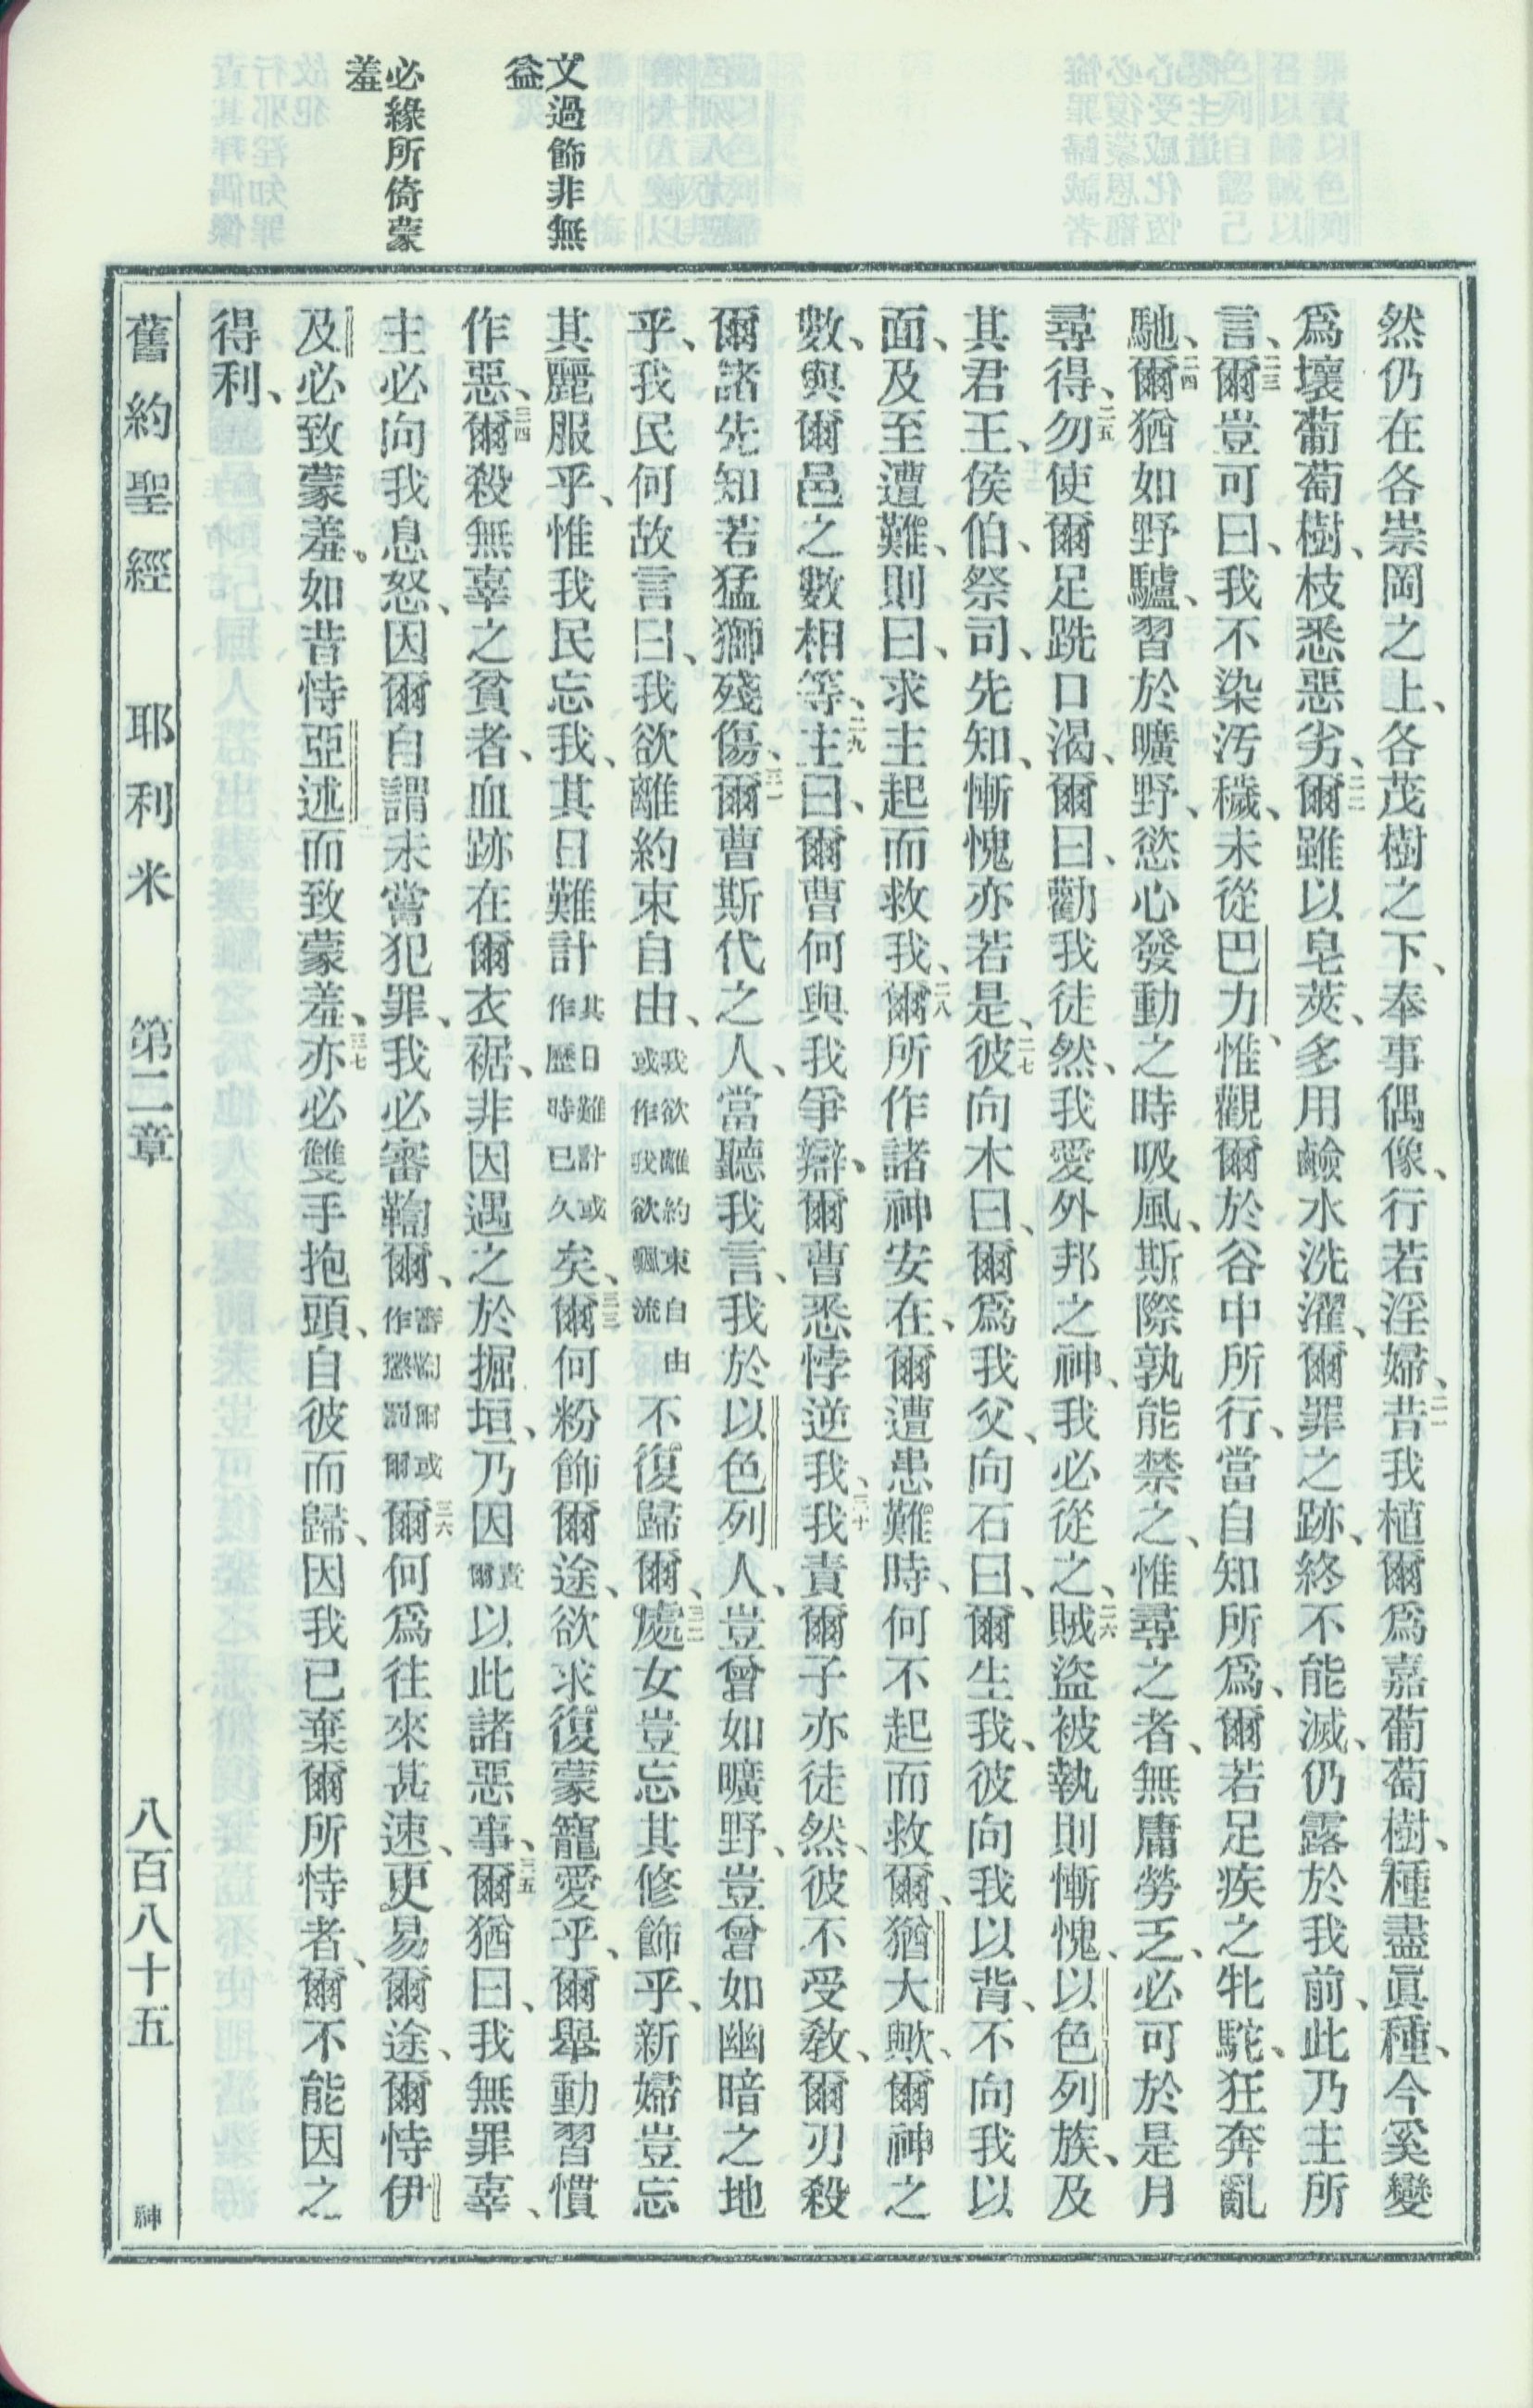 文過飾非無
益
必緣所倚蒙
羞
然仍在各崇岡之上、各茂樹之下、奉事偶像、行若淫婦、二一昔我植爾爲嘉葡萄樹、種盡眞種、今奚變
爲壞葡萄樹、枝悉惡劣、二二爾雖以皂莢、多用鹼水洗濯、爾罪之跡、終不能滅、仍露於我前、此乃主所
言、二三爾豈可曰、我不染汚穢、未從巴力、惟觀爾於谷中所行、當自知所爲、爾若足疾之牝駝、狂奔亂
馳、二四爾猶如野驢、習於曠野、慾心發動之時吸風、斯際孰能禁之、惟尋之者、無庸勞乏、必可於是月
尋得、二五勿使爾足跣口渴、爾曰、勸我徒然、我愛外邦之神、我必從之、二六賊盜被執則慚愧、以色列族、及
其君王、侯伯、祭司、先知、慚愧亦若是、二七彼向木曰、爾爲我父、向石曰、爾生我、彼向我以背、不向我以
面、及至遭難、則曰、求主起而救我、二八爾所作諸神安在、爾遭患難時、何不起而救爾、猶大歟、爾神之
數、與爾邑之數相等、二九主曰、爾曹何與我爭辯、爾曹悉悖逆我、三十我責爾子亦徒然、彼不受教、爾刃殺
爾諸先知若猛獅殘傷、三一爾曹斯代之人、當聽我言、我於以色列人、豈曾如曠野、豈曾如幽暗之地
乎、我民何故言曰、我欲離約束自由、我欲離約束自由或作我欲飄流不復歸爾、三二處女豈忘其修飾乎、新婦豈忘
其麗服乎、惟我民忘我、其日難計其日難計或作歷時已久矣、三三爾何粉飾爾途、欲求復蒙寵愛乎、爾舉動習慣
作惡、三四爾殺無辜之貧者、血跡在爾衣裾、非因遇之於掘垣、乃因責爾以此諸惡事、三五爾猶曰、我無罪辜、
主必向我息怒、因爾自謂未嘗犯罪、我必審鞫爾、審鞫爾或作懲罰爾三六爾何爲往來甚速、更易爾途、爾恃伊
及必致蒙羞、如昔恃亞述而致蒙羞、三七亦必雙手抱頭、自彼而歸、因我已棄爾所恃者、爾不能因之
得利、
舊約聖經 耶利米 第二章 八百八十五 神